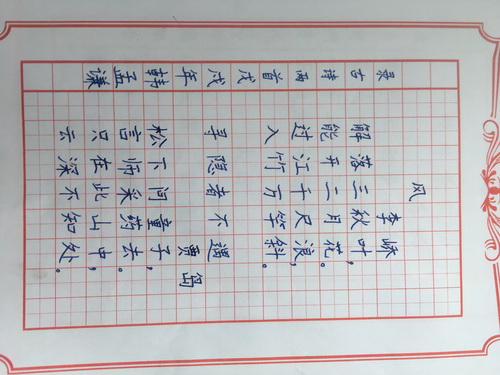 风
李峤
解落三秋叶，
能开二月花。
过江千尺浪，
入竹万竿斜。
寻隐者不遇
贾岛
松下问童子，
言师采药去。
只在此山中，
云深不知处。
录古诗两首戊戌年韩孟谦